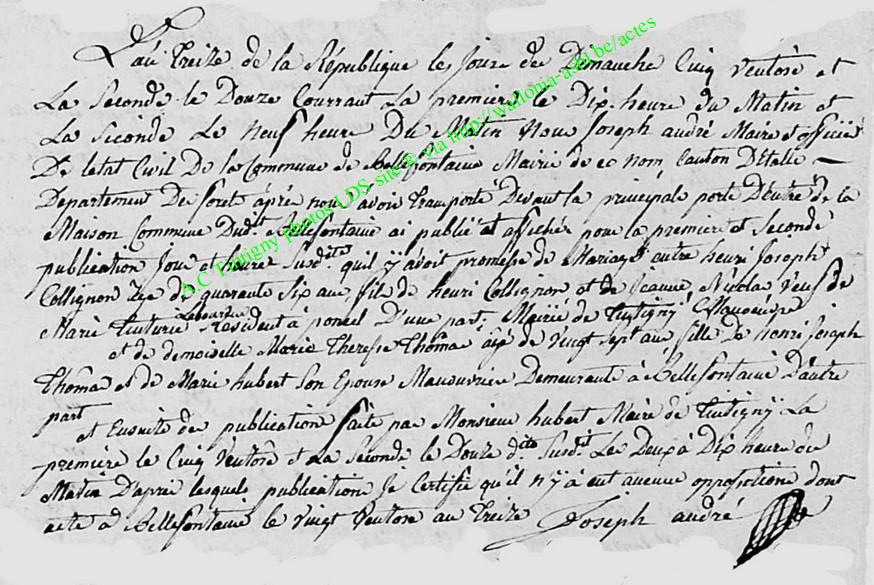 L'an treize de la République les jours de Dimanche Cinq ventose et
La Seconde le Douze Courrant La premiere le Dix heure du Matin et
La Seconde Le neuf heure Du Matin Nous Joseph andré Maire et officier
De letat Civil De la Commune de Bellefontaine Mairie de ce nom Canton D'Etalle
Departement De foret aprés nous avoir transporté Devant la principale porte D'entré de la
Maison Commune Dudit Bellefontaine ai publié et affiché pour la premiere et Seconde
publication Jour et heures Susdite quil y avoit promesse de Mariage entre henri Joseph
Collignon age de quarente Six ans fils de henri Collignon et de jeanne Nicolas Veuf de
Marie Resident à poncel D'une part, Mairie de tintigny Manoeuvre
et de demoiselle Marie Therese Thôma âgé de vingt Sept ans fille De henri Joseph
Thôma et de Marie hubert Son Epouse Manouvriere Demeurante à Bellefontaine D'autre
part
et Ensuite de publication faite par Monsieur hubert Maire de tintigny La
premiere le Cinq Ventôse et La Seconde le Douze dito Susdit Les Deux à Dix heure du
Matin D'aprés lesquels publication Je Certifie qu'il n'y à eut aucune oppositions dont
acte à Bellefontaine le vingt Ventose an treize Joseph andré
A.C Tintigny Photos LDS site @ via http://wallonia-asbl.be/actes